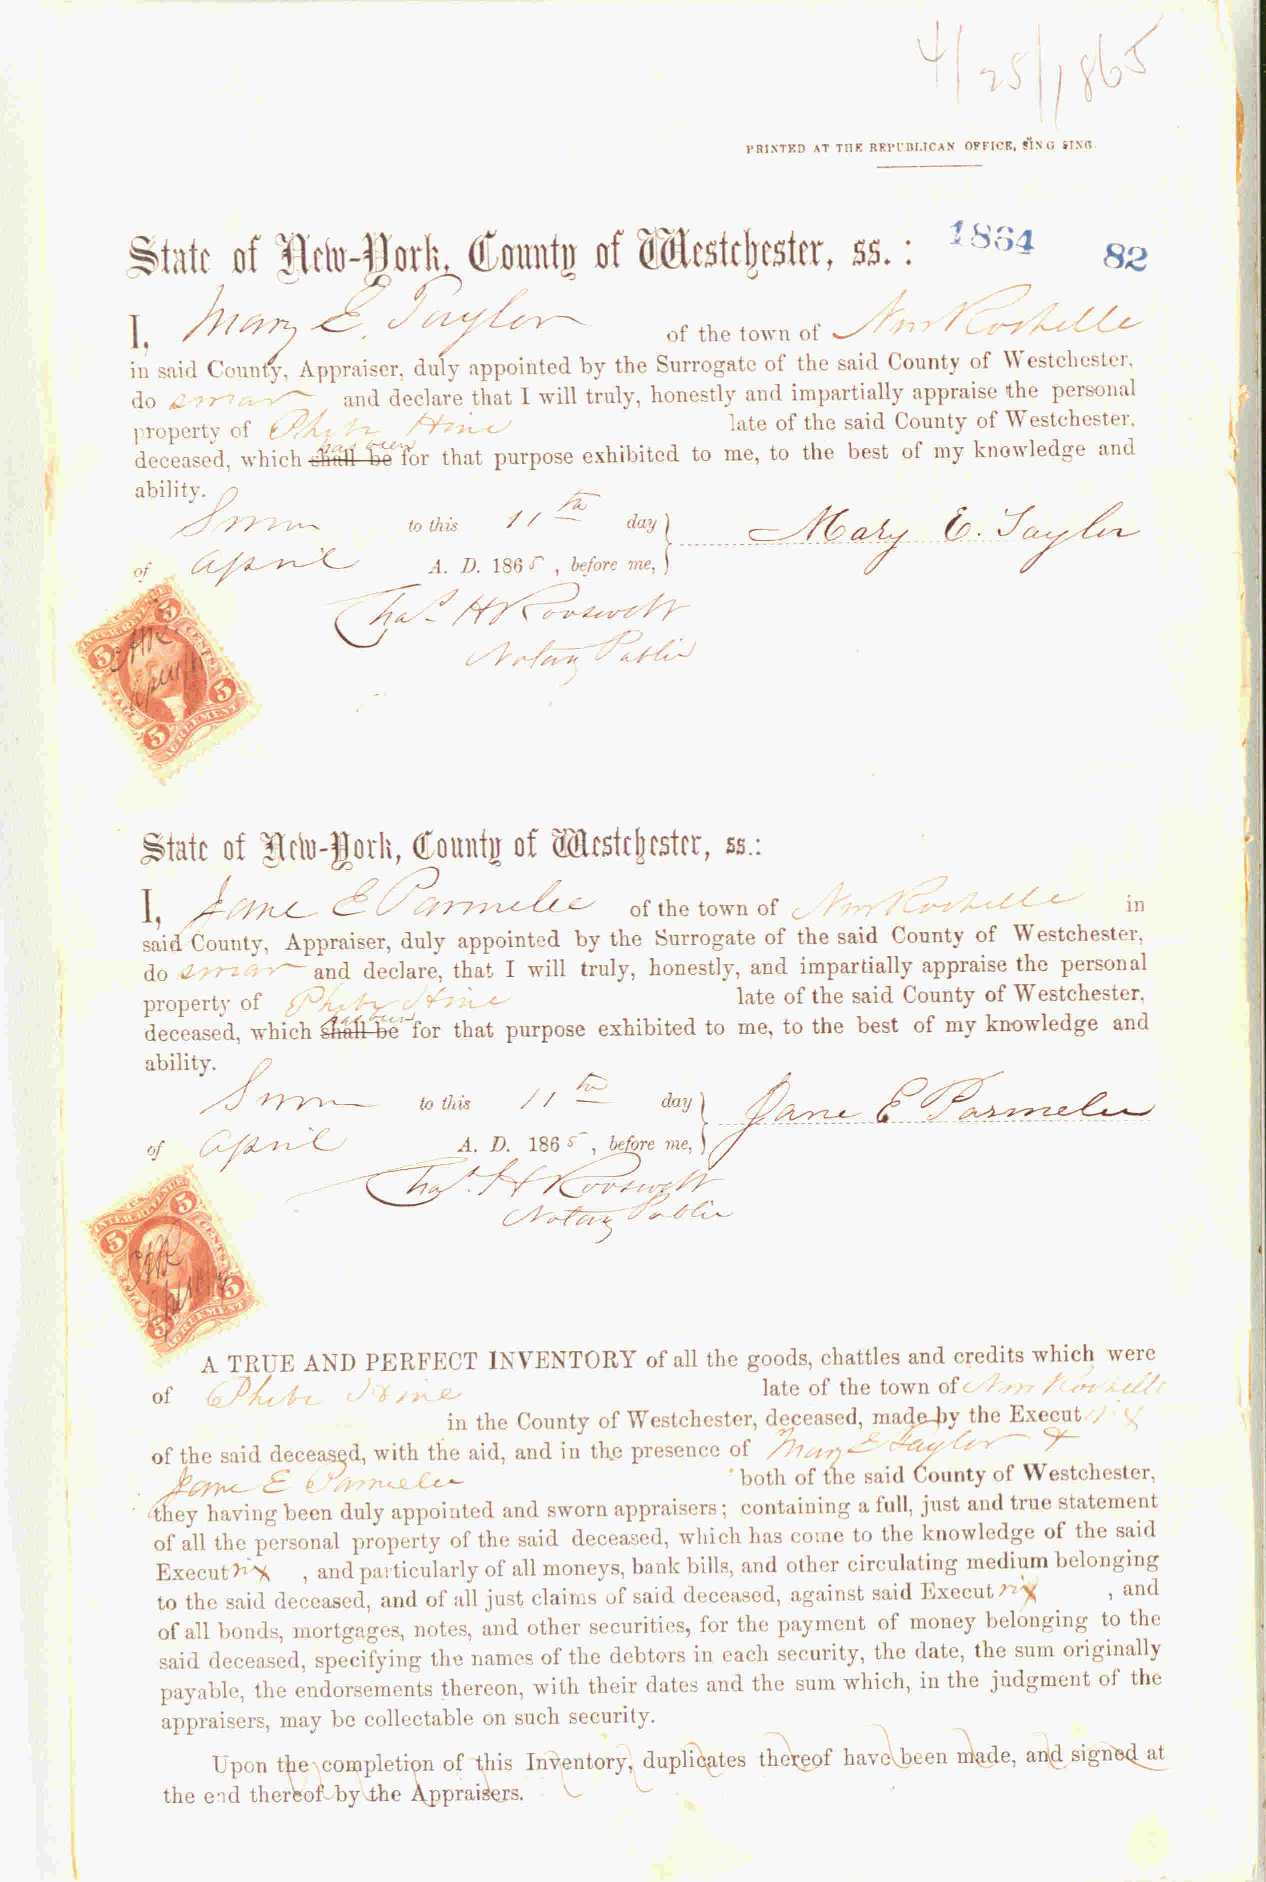 4/25/1865
PRINTED AT THE REPUBLICAN OFFICE, SING SING.
State of New-York, County of Westchester, ss.: 1864 82
I, Mary E. Taylor of the town of New Rochelle
in said County, Appraiser, duly appointed by the Surrogate of the said County of Westchester,
do swear and declare that I will truly, honestly and impartially appraise the personal
property of Phebe Hine late of the said County of Westchester,
has been
deceased, which shall be for that purpose exhibited to me, to the best of my knowledge and
ability.
Sworn to this 11th day
Mary E. Taylor
of April A. D. 1865, before me,
Thas. H Roosevelt
Notary Public
5 5 INTER. REVENUE
FIVE CENTS
5 5 AGREEMENT
THR
April 11
State of New-York, County of Westchester, ss.:
I, Jane E Parmelee of the town of New Rochelle in
said County, Appraiser, duly appointed by the Surrogate of the said County of Westchester,
do swear and declare, that I will truly, honestly, and impartially appraise the personal
property of Phebe Hine late of the said County of Westchester,
has been
deceased, which shall be for that purpose exhibited to me, to the best of my knowledge and
ability.
Sworn to this 11th day
Jane E Parmelee
of April A. D. 1865, before me,
Thas. H Roosevelt
Notary Public
5 5 INTER. REVENUE
FIVE CENTS
5 5 AGREEMENT
THR
A TRUE AND PERFECT INVENTORY of all the goods, chattles and credits which were
of Phebe Hine late of the town of New Rochelle
in the County of Westchester, deceased, made by the Executrix
of the said deceased, with the aid, and in the presence of Mary E Taylor &
Jane E Parmelee both of the said County of Westchester,
they having been duly appointed and sworn appraisers; containing a full, just and true statement
of all the personal property of the said deceased, which has come to the knowledge of the said
Executrix , and particularly of all moneys, bank bills, and other circulating medium belonging
to the said deceased, and of all just claims of said deceased, against said Executrix , and
of all bonds, mortgages, notes, and other securities, for the payment of money belonging to the
said deceased, specifying the names of the debtors in each security, the date, the sum originally
payable, the endorsements thereon, with their dates and the sum which, in the judgment of the
appraisers, may be collectable on such security.
Upon the completion of this Inventory, duplicates thereof have been made, and signed at
the end thereof by the Appraisers.